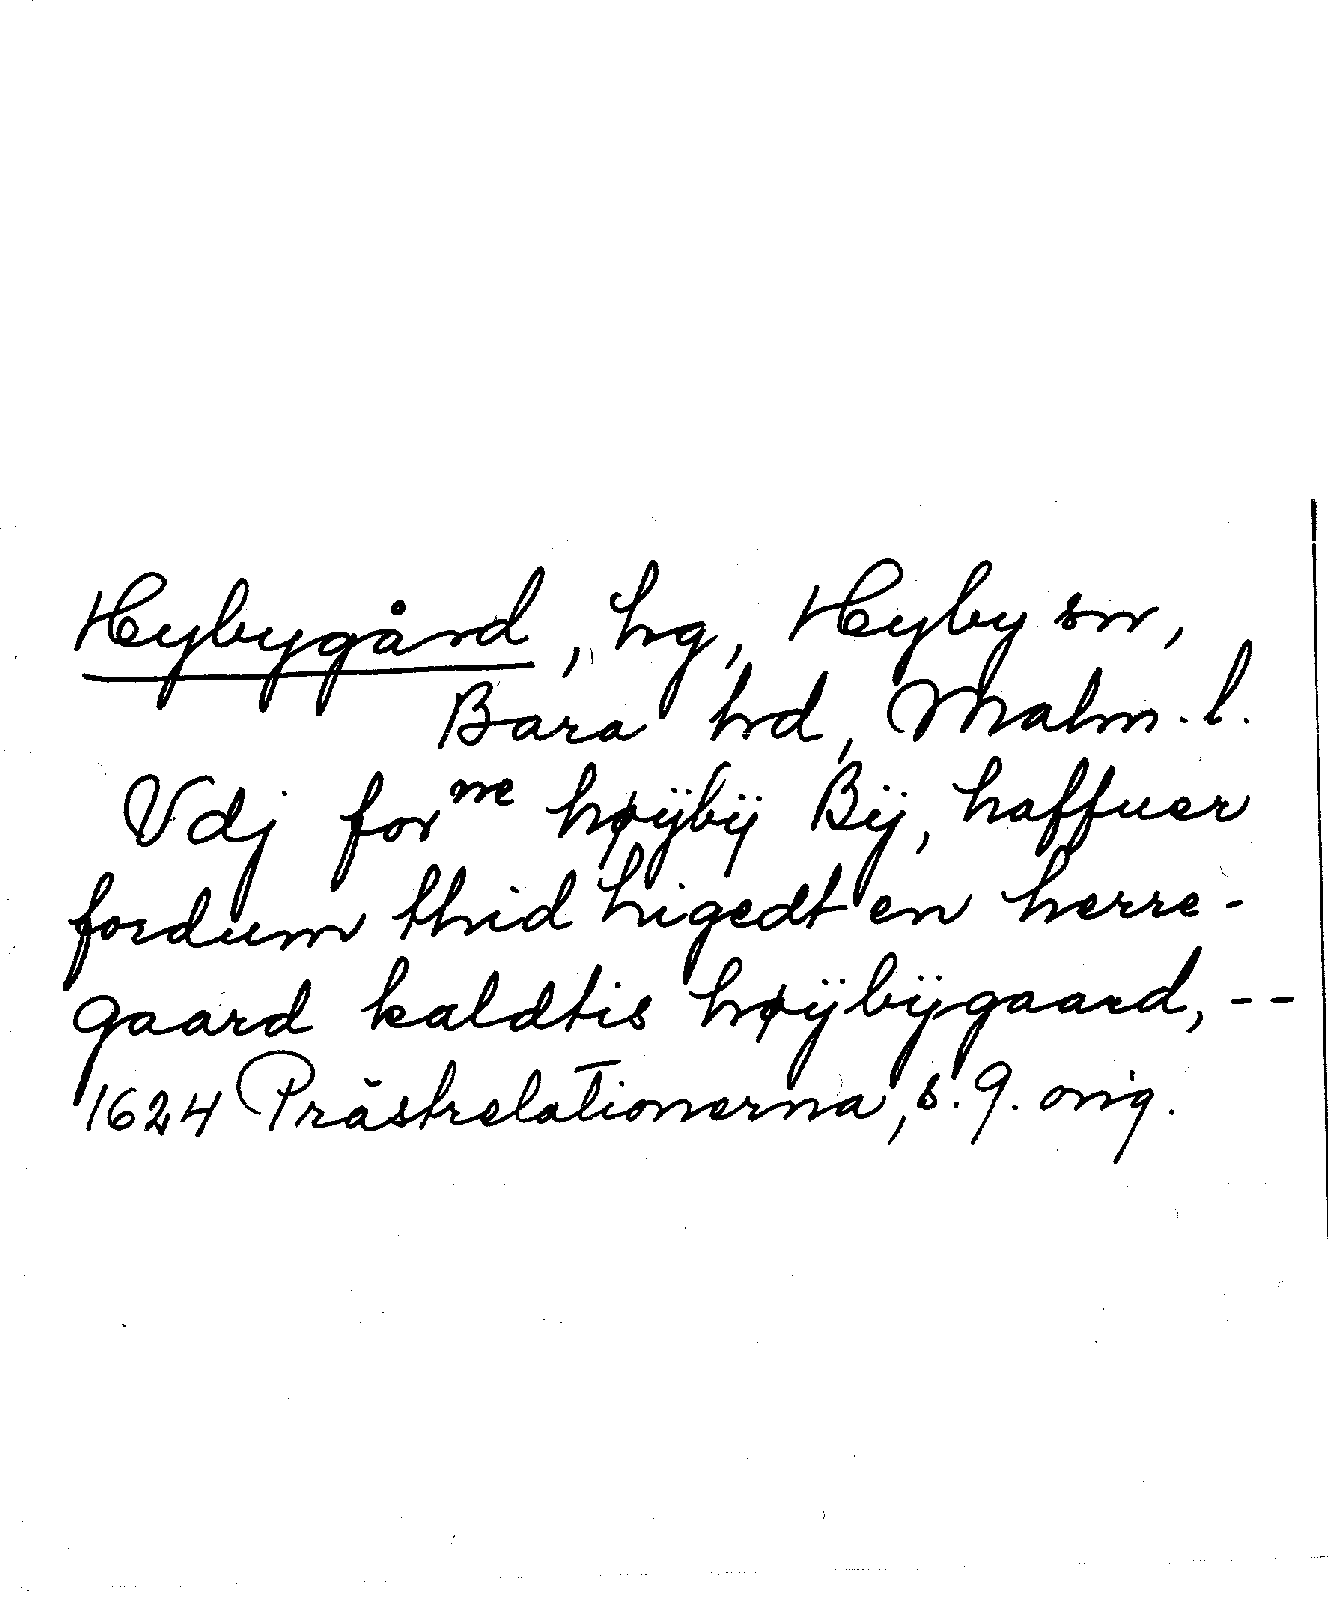 Hybygård, hg, Hyby sn,
Bara hd, Malm. l.
Vdj forne høÿbÿ Bÿ, haffuer
fordum thid higedt en herre-
gaard kaldtis høÿbÿgaard, --
1624 Prästrelationerna, s. 9. orig.